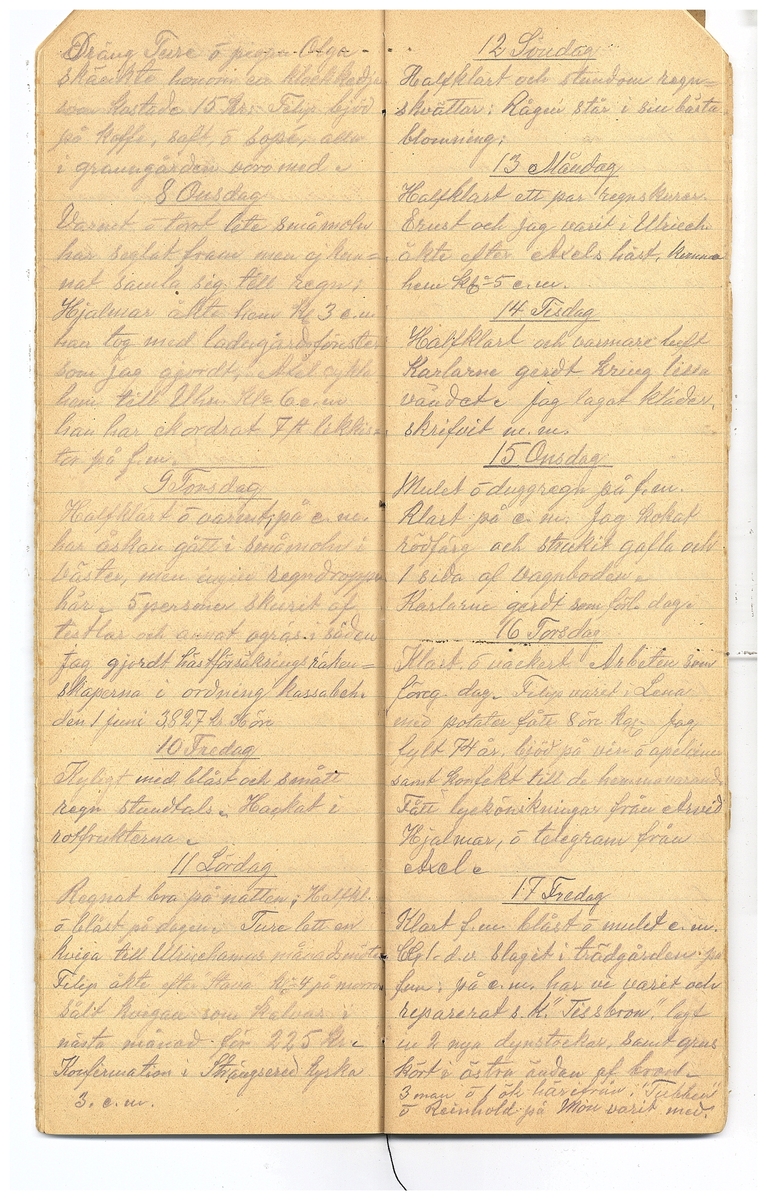 Dräng Ture ö pigan Olga
skänkte honom en klockkedja
som kostade 15 Kr. Filip bjöd
på kaffe, saft, ö sopé, alla
i granngården voro med.
8 Onsdag
Varmt ö torrt lite småmoln
har seglat fram men ej kun=
nat samla sig till regn;
Hjalmar åkte hem kl 3 e.m
han tog med ladugårdsfönster
som jag gjordt, Axel cykla
hem till Uhn. Kl. 6 e.m
han har
på f.m.
9 Torsdag
Halfklart ö varmt, på e.m.
har åskan gått i småmoln i
väster, men ingen regndroppe
här. 5 personer skurit af
testlar och annat ogräs i säden
Jag gjordt hästförsäkrings räken=
skaperna i ordning kassabeh.
den 1 juni 3827 kr
10 Fredag
Kyligt med blåst och smått
regn stundtals. Hackat i
rotfrukterna.
11 Lördag
Regnat bra på natten; Halfkl.
ö blåst på dagen. Ture latt en
kviga till Ulricehamns månadsmöte
Filip åkte efter Stava kl. 4 på morron
sålt kvigan som kalvar i
nästa månad för 225 Kr.
Konfirmation i Strängsered kyrka
3. e.m.
12 Söndag
Halfklart och stundom regn=
skvättar; Rågen står i sin bästa
blomning;
13 Måndag
Halfklart ett par regnskurar.
Ernst och jag varit i Ulriceh.
åkte efter Axels häst, komma
hem kl. 5 e.m.
14 Tisdag
Halfklart och varmare luft
Karlarne gerdt kring lissa
vändet. Jag lagat kläder,
skrifvit m.m.
15 Onsdag
Mulet ö duggregn på f.m.
Klart på e.m. Jag kokat
rödfärg och strukit gafla och
1 sida af vagnboden.
Karlarne gerdt som förl. dag.
16 Torsdag
Klart, ö vackert Arbeten som
föreg. dag. Filip varit i Lena
med potater fått 8 öre Kg. Jag
fylt 74 år, bjöd på vin ö apelsiner
samt konfekt till de hemmavarand.
Fått lyckönskningar från Arvid
Hjalmar, ö telegram från
Axel.
17 Fredag
Klart f.m blåst ö mulet e.m.
slaget i trädgården på
f.m; på e.m. har vi varit och
reparerat s.k. "Tissbron", lagt
in 2 nya dynstockar, samt grus
kört i östra ändan af bron.
3 man ö 1 ök härifrån;
ö Reinhold på Mon varit med.